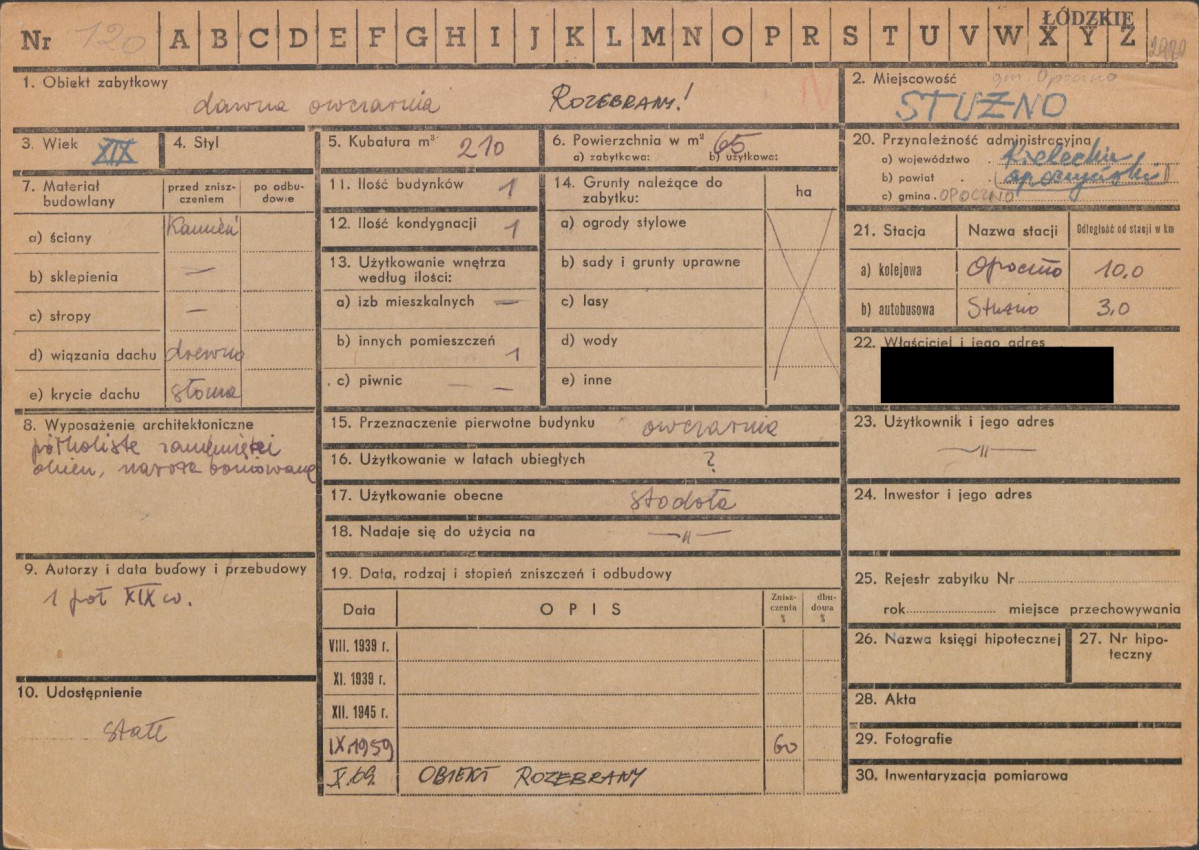 Nr 120 A B C D E F G H I J K L M N O P R S T U V W X Y Z
ŁÓDZKIE
1. Obiekt zabytkowy
dawna owczarnia ROZEBRANY! N
2. Miejscowość gm. Opoczno
STUŻNO
3. Wiek XIX
4. Styl
5. Kubatura m³: 210
6. Powierzchnia w m² 65
a) zabytkowa: b) użytkowa:
20. Przynależność administracyjna
a) województwo . kieleckie
b) powiat . . opoczyński
c) gmina . OPOCZNO
7. Materiał budowlany
przed znisz-
czeniem
po odbu-
dowie
a) ściany kamień
b) sklepienia —
c) stropy —
d) wiązania dachu drewno
e) krycie dachu słoma
11. Ilość budynków 1
12. Ilość kondygnacji 1
13. Użytkowanie wnętrza
według ilości:
a) izb mieszkalnych —
b) innych pomieszczeń 1
c) piwnic — —
14. Grunty należące do
zabytku:
ha
a) ogrody stylowe
b) sady i grunty uprawne
c) lasy
d) wody
e) inne
21. Stacja Nazwa stacji Odległość od stacji w km
a) kolejowa Opoczno 10,0
b) autobusowa Stużno 3,0
22. Właściciel i jego adres
8. Wyposażenie architektoniczne
półkoliste zamknięcia
okien, naroża boniowane
15. Przeznaczenie pierwotne budynku owczarnia
16. Użytkowanie w latach ubiegłych ?
17. Użytkowanie obecne stodoła
18. Nadaje się do użycia na —"—
23. Użytkownik i jego adres
—"—
24. Inwestor i jego adres
9. Autorzy i data budowy i przebudowy
1 poł XIX w.
10. Udostępnienie
stałe
19. Data, rodzaj i stopień zniszczeń i odbudowy
Data OPIS
Znisz-
czenia
%
dbu-
dowa
%
VIII. 1939 r.
XI. 1939 r.
XII. 1945 r.
IX.1959 60
X.69. OBIEKT ROZEBRANY
25. Rejestr zabytku Nr
rok miejsce przechowywania
26. Nazwa księgi hipotecznej
27. Nr hipo-
teczny
28. Akta
29. Fotografie
30. Inwentaryzacja pomiarowa